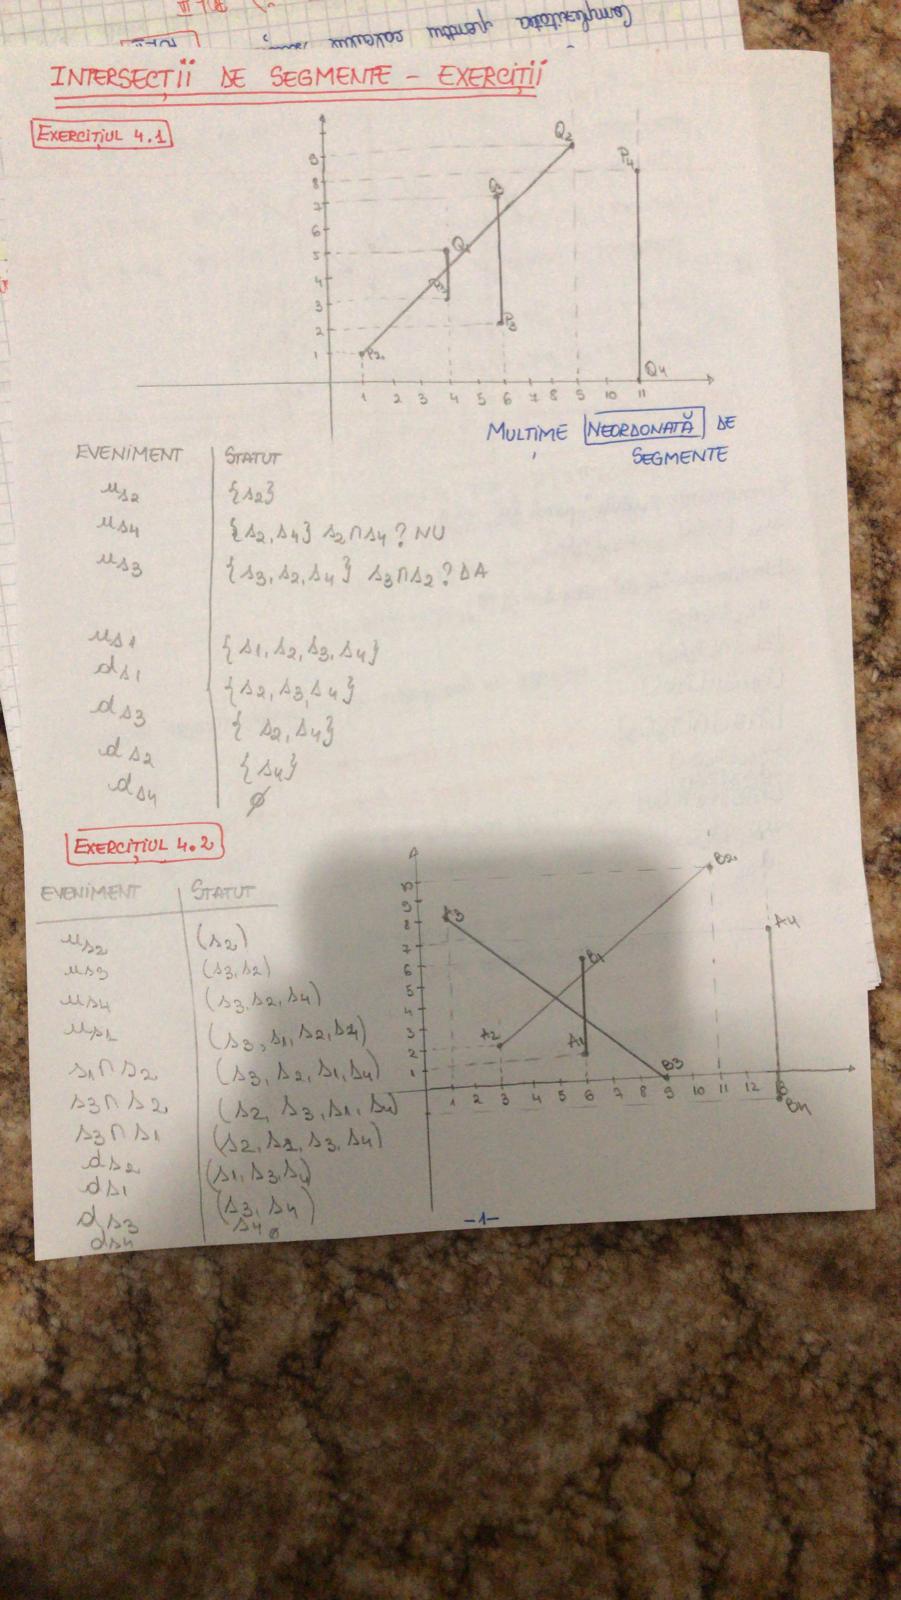 Complexitatea pentru calculul
INTERSECȚII DE SEGMENTE – EXERCIȚII
EXERCIȚIUL 4.1
Q2
P4
Q3
Q1
P1
P3
P2
Q4
9
8
7
6
5
4
3
2
1
1 2 3 4 5 6 7 8 9 10 11
MULȚIME NEORDONATĂ DE
SEGMENTE
EVENIMENT STATUT
us2 {s2}
us4 {s2, s4} s2∩s4? NU
us3 {s3, s2, s4} s3∩s2? DA
us1 {s1, s2, s3, s4}
ds1 {s2, s3, s4}
ds3 {s2, s4}
ds2 {s4}
ds4 ∅
EXERCIȚIUL 4.2
EVENIMENT STATUT
us2 (s2)
us3 (s3, s2)
us4 (s3, s2, s4)
us1 (s3, s1, s2, s4)
s1∩s2 (s3, s2, s1, s4)
s3∩s2 (s2, s3, s1, s4)
s3∩s1 (s2, s1, s3, s4)
ds2 (s1, s3, s4)
ds1 (s3, s4)
ds3 s4
ds4 ∅
B2
A3
A4
B1
A2
A1
B3
B4
10
9
8
7
6
5
4
3
2
1
1 2 3 4 5 6 7 8 9 10 11 12 13
-1-